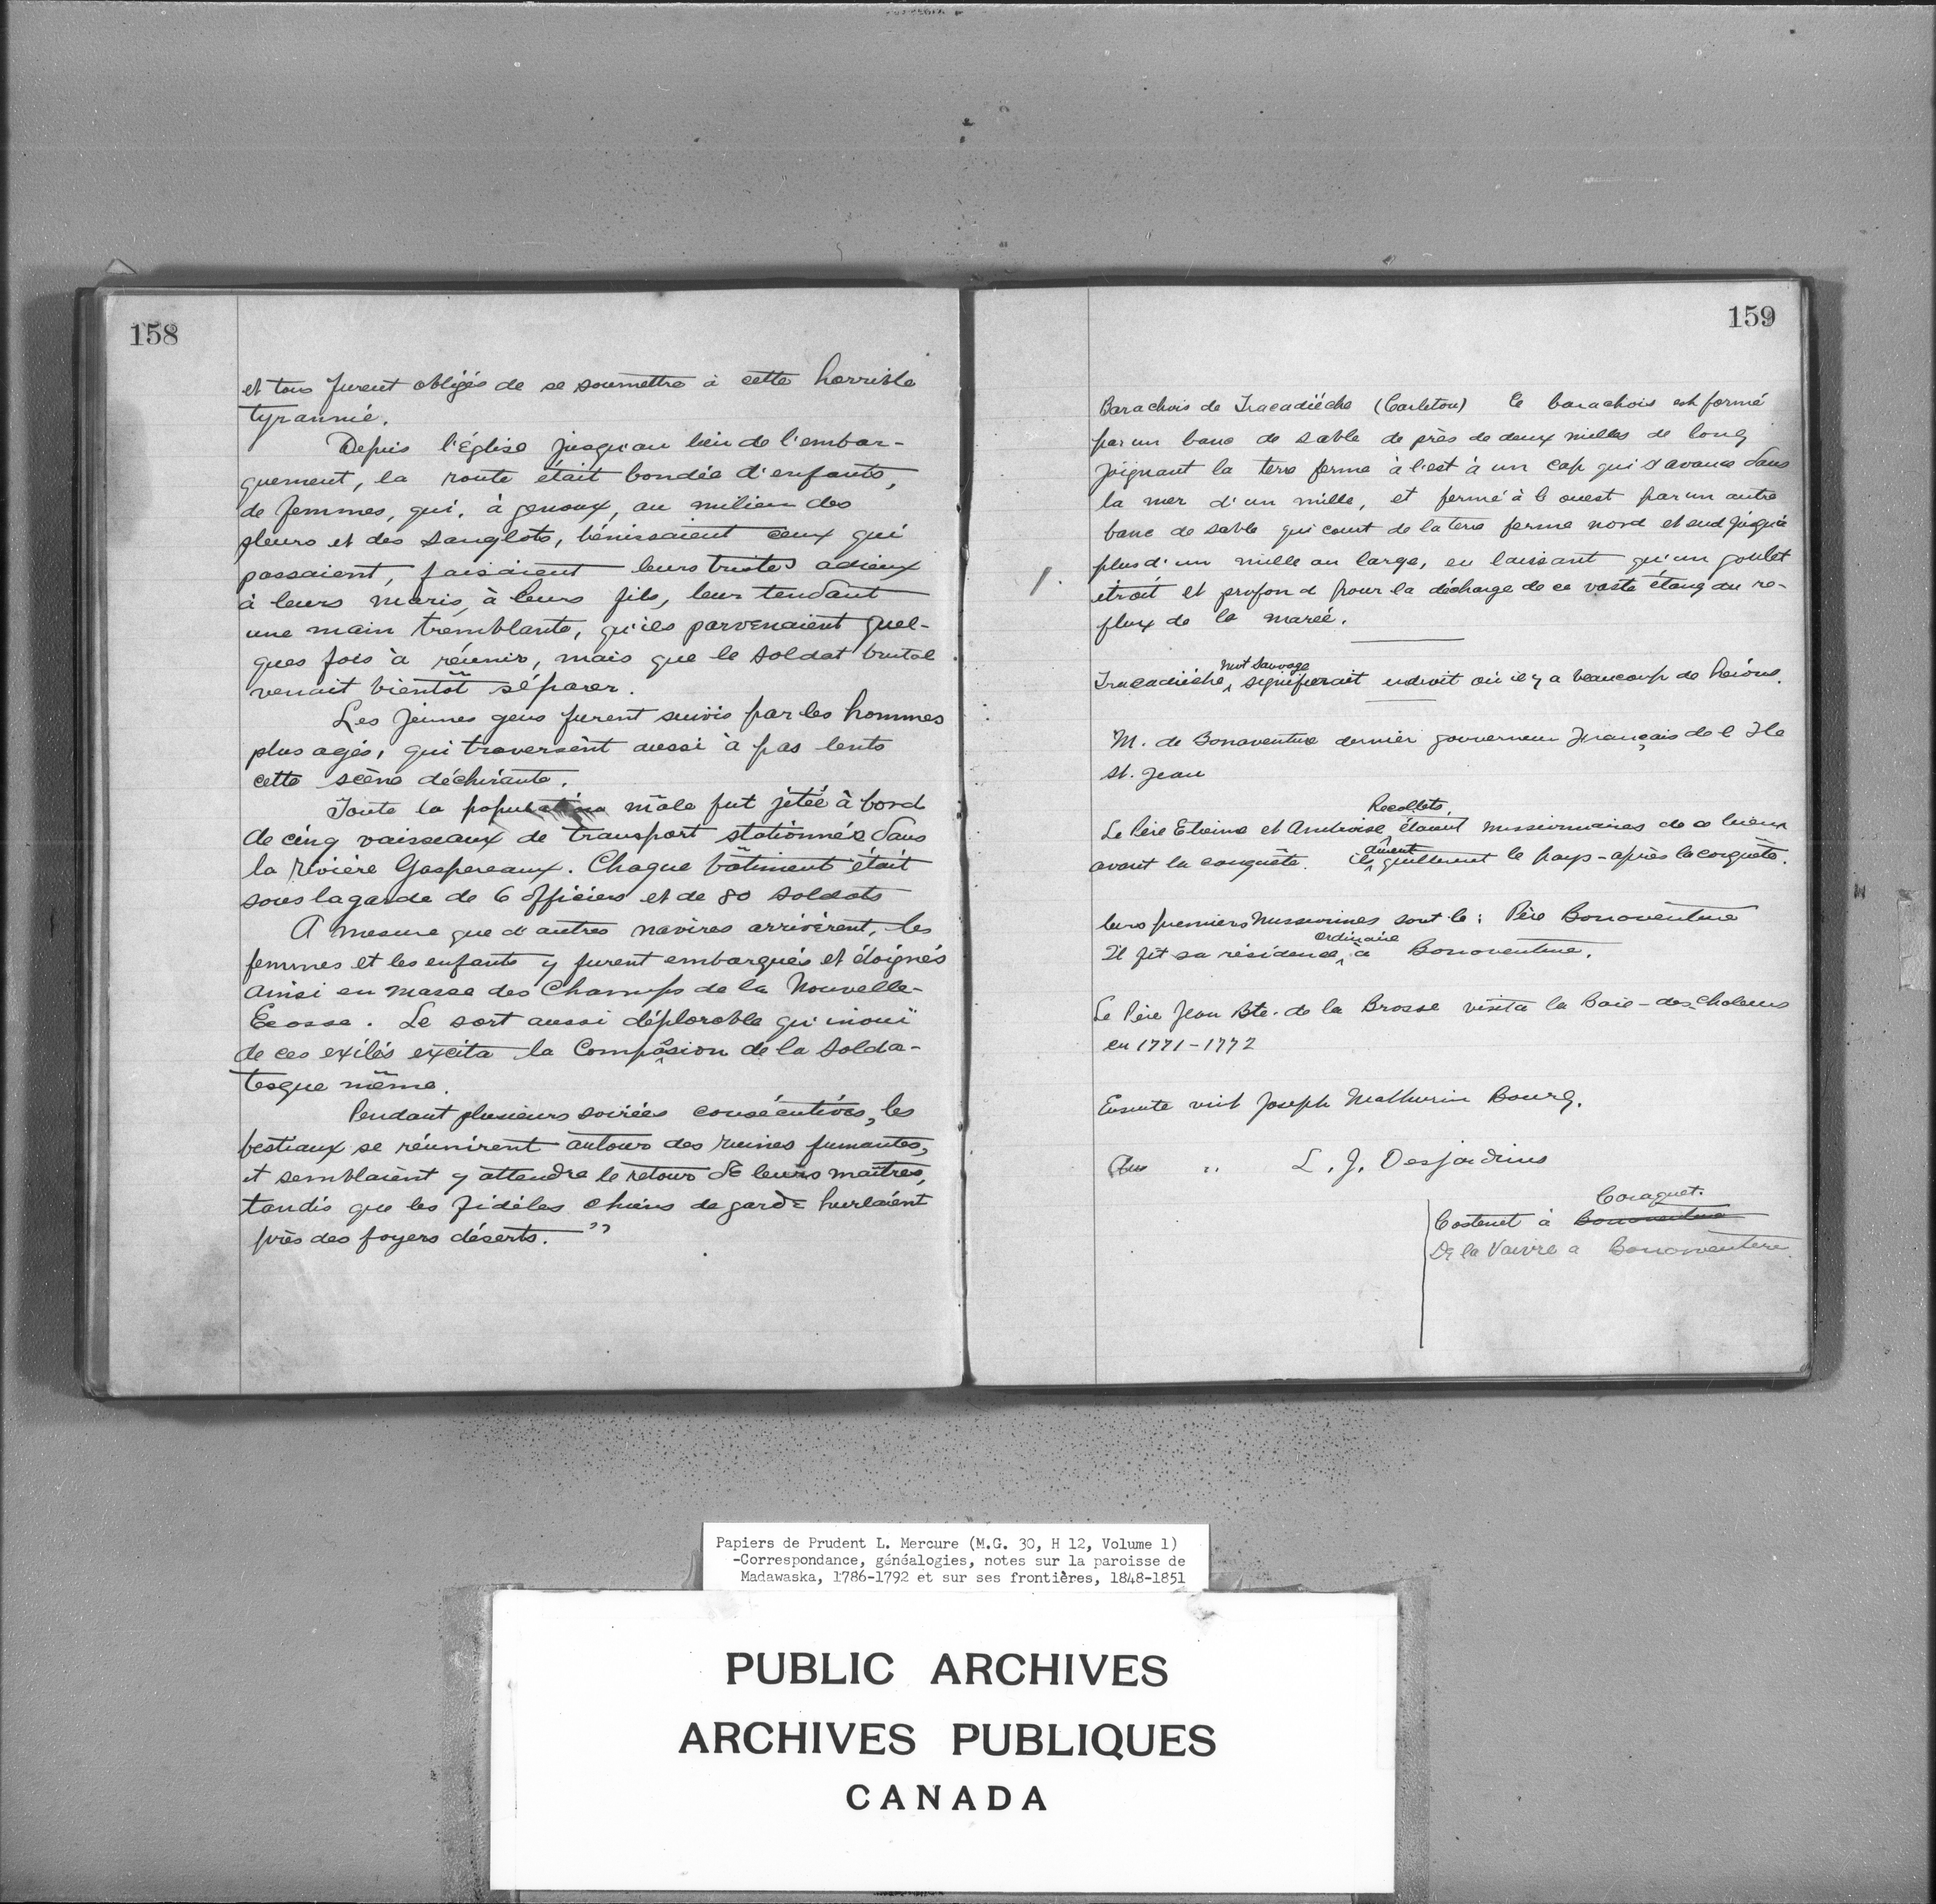 158
et tous furent obligés de se soumettre à cette horrible
tyrannie.
Depuis l'Église jusqu'au lieu de l'embar-
quement, la route était bondée d'enfants,
de femmes, qui, à genoux, au milieu des
pleurs et des sanglots, bénissaient ceux qui
passaient, faisaient leurs tristes adieux
à leurs maris, à leurs fils, leur tendant
une main tremblante, qu'ils parvenaient quel-
ques fois à réunir, mais que le soldat brutal
venait bientôt séparer.
Les jeunes gens furent suivis par les hommes
plus agés, qui traversènt aussi à pas lents
cette scène déchirante.
Toute la population mâle fut jetée à bord
de cinq vaisseaux de transport stationnés dans
la rivière Gaspereaux. Chaque bâtiment était
sous la garde de 6 officiers et de 80 soldats
A mesure que d'autres navires arrivèrent, les
femmes et les enfants y furent embarqués et éloignés
ainsi en masse des Champs de la Nouvelle-
Ecosse. Le sort aussi déplorable qu'inouï
de ces exilés excita la Compassion de la solda-
tesque même.
Pendant plusieurs soirées consécutives, les
bestiaux se réunirent autour des ruines fumantes,
et semblaient y attendre le retour de leurs maîtres,
tandis que les fidèles chiens de garde hurlaient
près des foyers déserts. "
159
Barachois de Tracadièche (Carleton) Ce barachois est formé
par un banc de sable de près de deux milles de long
joignant la tere ferme à l'est à un cap qui s'avance dans
la mer d'un mille, et fermé à l'ouest par un autre
banc de sable qui court de la terre ferme nord et sud jusqu'à
plus d'un mille au large, en laissant qu'un goulet
étroit et profond pour la décharge de ce vaste étang au re-
flux de la marée.
mot sauvage
Tracadièche, signifierait endroit où il y a beaucoup de hérons.
M. de Bonaventure dernier gouverneur Français de l'Ile
St. Jean
Recollets
Le Père Etienne et Ambroise, étaient missionnaires de ce lieux
avant la conquête. ils quittèrent le pays - après la conquête.
leurs premiers Missionnes sont le: Père Bonaventure
ordinaire
Il fit sa résidence à Bonaventure.
Le Père Jean Bte. de la Brosse visita la Baie-des-Chaleurs
en 1771-1772
Ensuite vint Joseph Mathurin Bourg.
" L. J. Desjardins
Caraquet.
Castenet à Bonaventure
De la Vaivre a Bonaventure.
Papiers de Prudent L. Mercure (M.G. 30, H 12, Volume 1)
-Correspondance, généalogies, notes sur la paroisse de
Madawaska, 1786-1792 et sur ses frontières, 1848-1851
PUBLIC ARCHIVES
ARCHIVES PUBLIQUES
CANADA